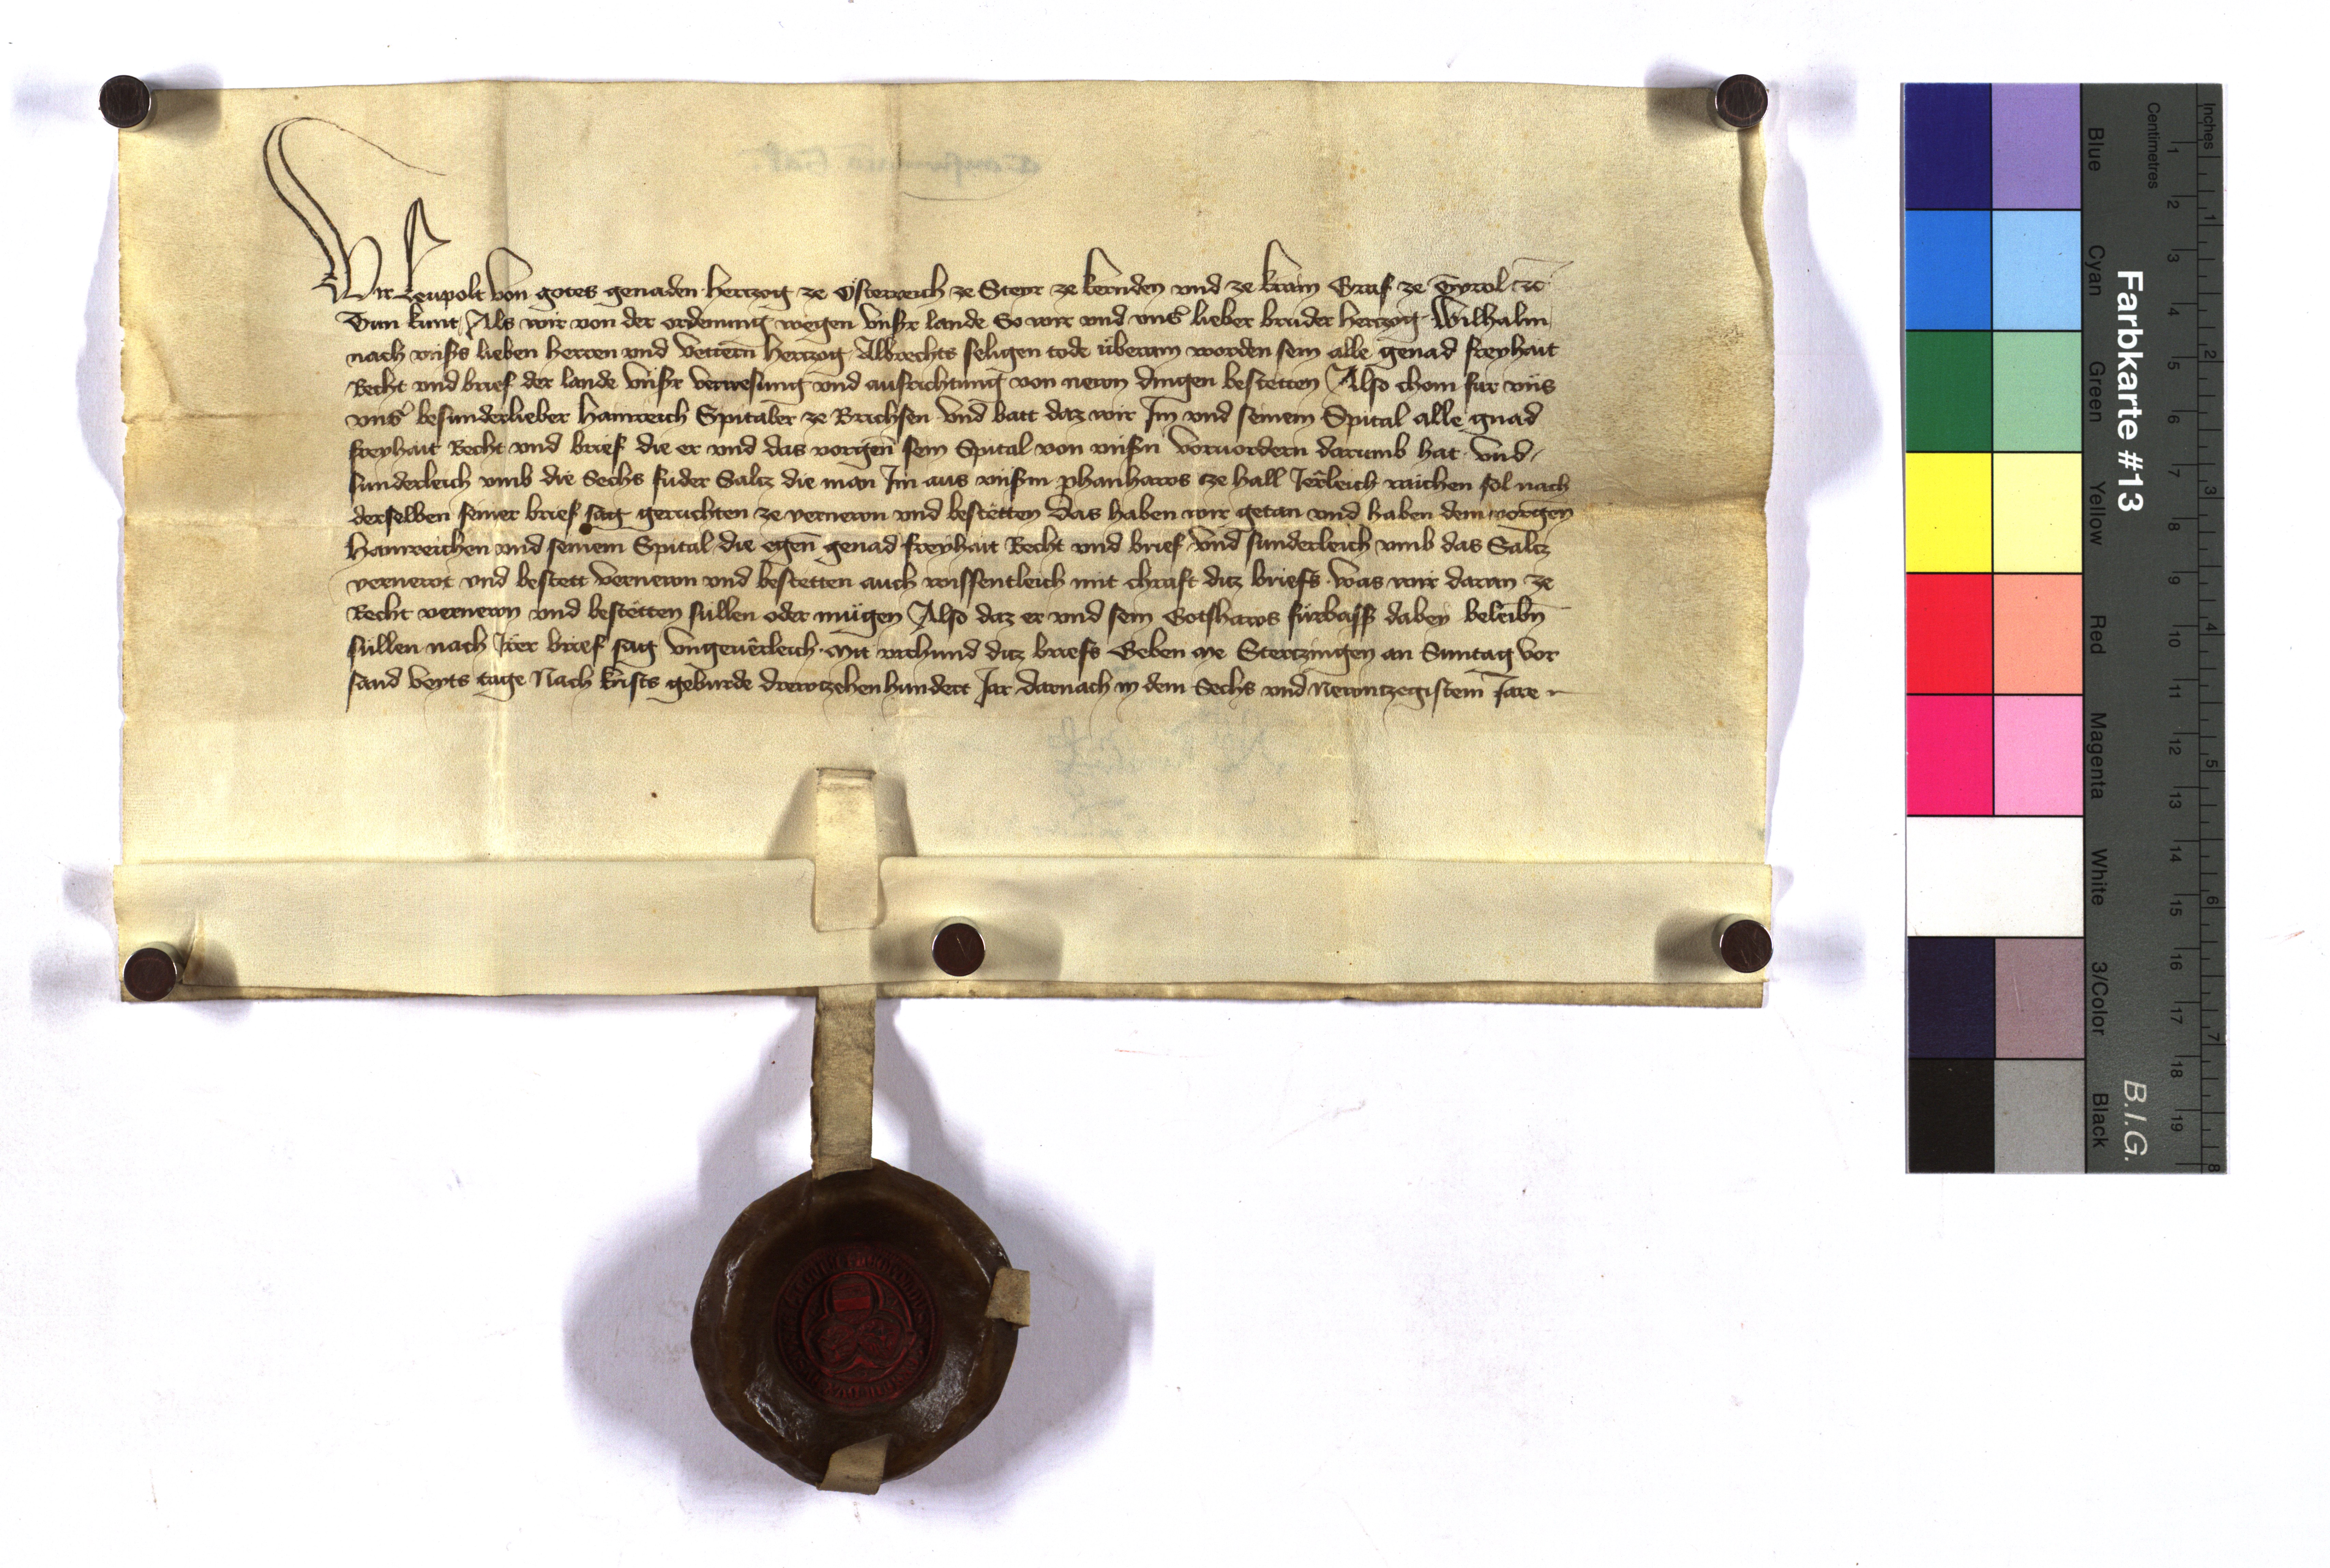 Wir Leupolt von gotes genaden hertzog ze Österreich ze Steyr ze kernden vnd ze krain Graf ze Tyrol etc
Tun kunt Als wir von der ordenung wegen vnsr lande So wir vnd vnsr lieber bruder hertzog Wilhalm
nach vnsrs lieben herren vnd vettern hertzog Albrechts seligen tode überain worden sein alle genad freyhait
Recht vnd brief der lande vnsr verwesung vnd ausrichtung von newn dingen bestetten Also chom für vns
vnsr besunderlieber Hainreich Spitaler ze Brichsen vnd batt daz wir Im vnd seinem Spital alle gnad
freyhait Recht vnd brief die er vnd das vorgen sein Spital von vnsrn voruordern darumb hat vnd
sunderleich vmb die Sechs fuder Saltz die man Im aus vnsrm phanhaws cze hall Jerleich raichen sol nach
derselben seiner brief sag geruchten ze vernewn vnd bestetten Das haben wir getan vnd haben dem vorgen
Hainreichen vnd seinem Spital die egen genad freyhait Recht vnd brief vnd sunderleich vmb das Saltz
vernewt vnd bestett vernewn vnd bestetten auch wissentleich mit chraft ditz briefs was wir daran ze
Recht vernewn vnd bestetten süllen oder mügen Also daz er vnd sein Gotshaws fürbass dabey beleibn
süllen nach Irer brief sag vngeuerleich Mit vrchund ditz briefs Geben ze Stertzingen an Suntag vor
sand veyts tage Nach krists geburde drewtzehenhundert Jar darnach in dem Sechs vnd Newntzegistem Jare
Farbkarte #13
B.I.G.
Inches
Centimetres
1 2 3 4 5 6 7 8
1 2 3 4 5 6 7 8 9 10 11 12 13 14 15 16 17 18 19
Blue
Cyan
Green
Yellow
Red
Magenta
White
3/Color
Black